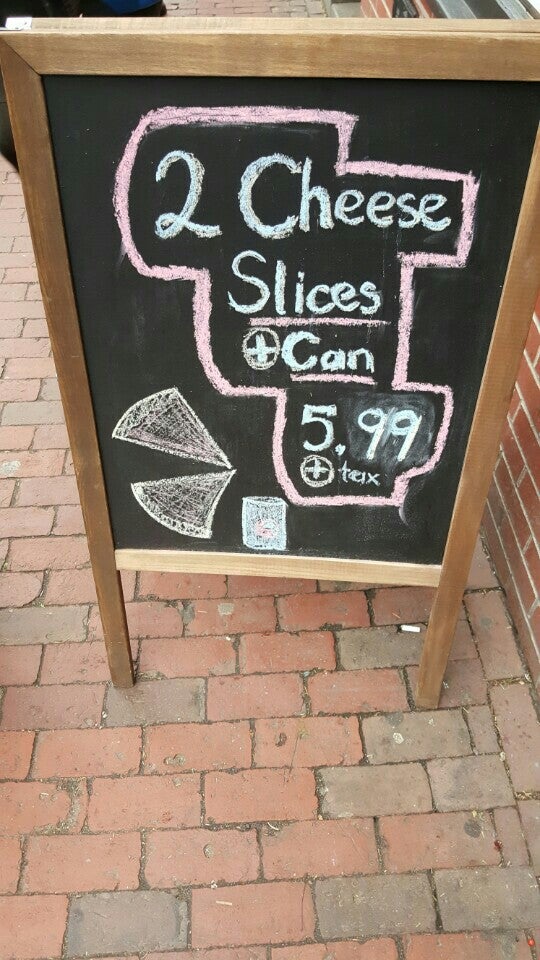 2 Cheese
Slices
+ Can
5.99
+ tax